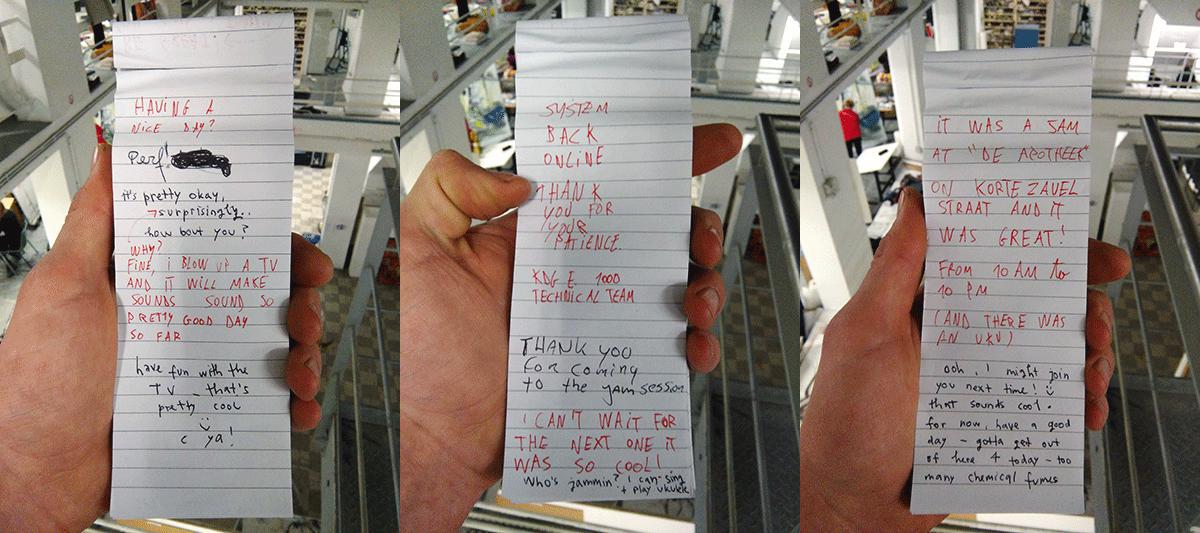 HAVING A
NICE DAY?
Perf
it's pretty okay,
surprisingly..
how bout you?
WHY?
FINE, I BLOW UP A TV
AND IT WILL MAKE
SOUNDS SOUND SO
PRETTY GOOD DAY
SO FAR
have fun with the
TV - that's
pretty cool
c ya!
SYSTEM
BACK
ONLINE
THANK
YOU FOR
YOUR
PATIENCE.
KDG E. 1000
TECHNICAL TEAM
THANK YOU
for coming
to the yam session
I CAN'T WAIT FOR
THE NEXT ONE IT
WAS SO COOL!
Who's jammin? I can sing
+ play ukulele
IT WAS A JAM
AT "DE APOTHEEK"
ON KORTE ZAVEL
STRAAT AND IT
WAS GREAT!
FROM 10 AM to
10 PM
(AND THERE WAS
AN UKU)
ooh, I might join
you next time!
that sounds cool.
for now, have a good
day - gotta get out
of here 4 today - too
many chemical fumes